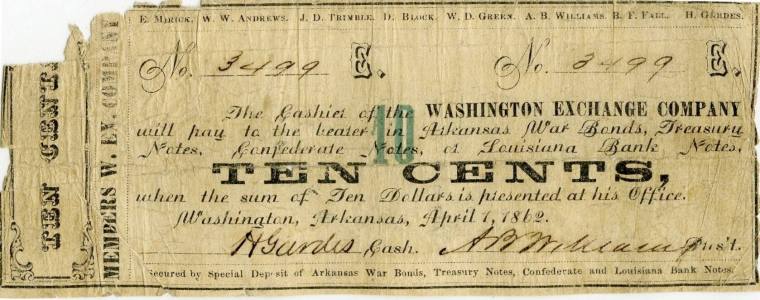 E. MERICK. W. W. ANDREWS. J. D. TRIMBLE. D. BLOCK. W. D. GREEN. A. B. WILLIAMS. B. F. FALL. H. GERDES.
No. 3499 No. 3499
The Cashier of the WASHINGTON EXCHANGE COMPANY
will pay to the bearer in Arkansas War Bonds, Treasury
Notes, Confederate Notes, or Louisiana Bank Notes,
10
TEN CENTS,
when the sum of Ten Dollars is presented at his Office.
Washington, Arkansas, April 1, 1862.
H Gerdes Cash. A B Williams Pres't.
Secured by Special Deposit of Arkansas War Bonds, Treasury Notes, Confederate and Louisiana Bank Notes.
TEN CENT
MEMBERS W. EX. COMPANY